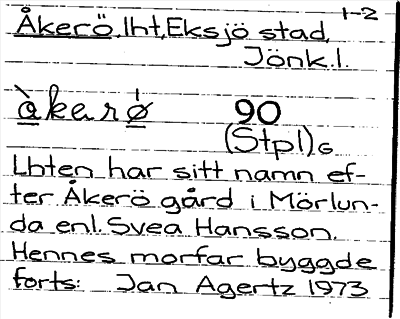 1-2
Åkerö, lht, Eksjö stad,
Jönk. l.
àkerø̀ 90
(Stpl) G
Lhten har sitt namn ef-
ter Åkerö gård i Mörlun-
da enl. Svea Hansson.
Hennes morfar byggde
forts: Jan Agertz 1973